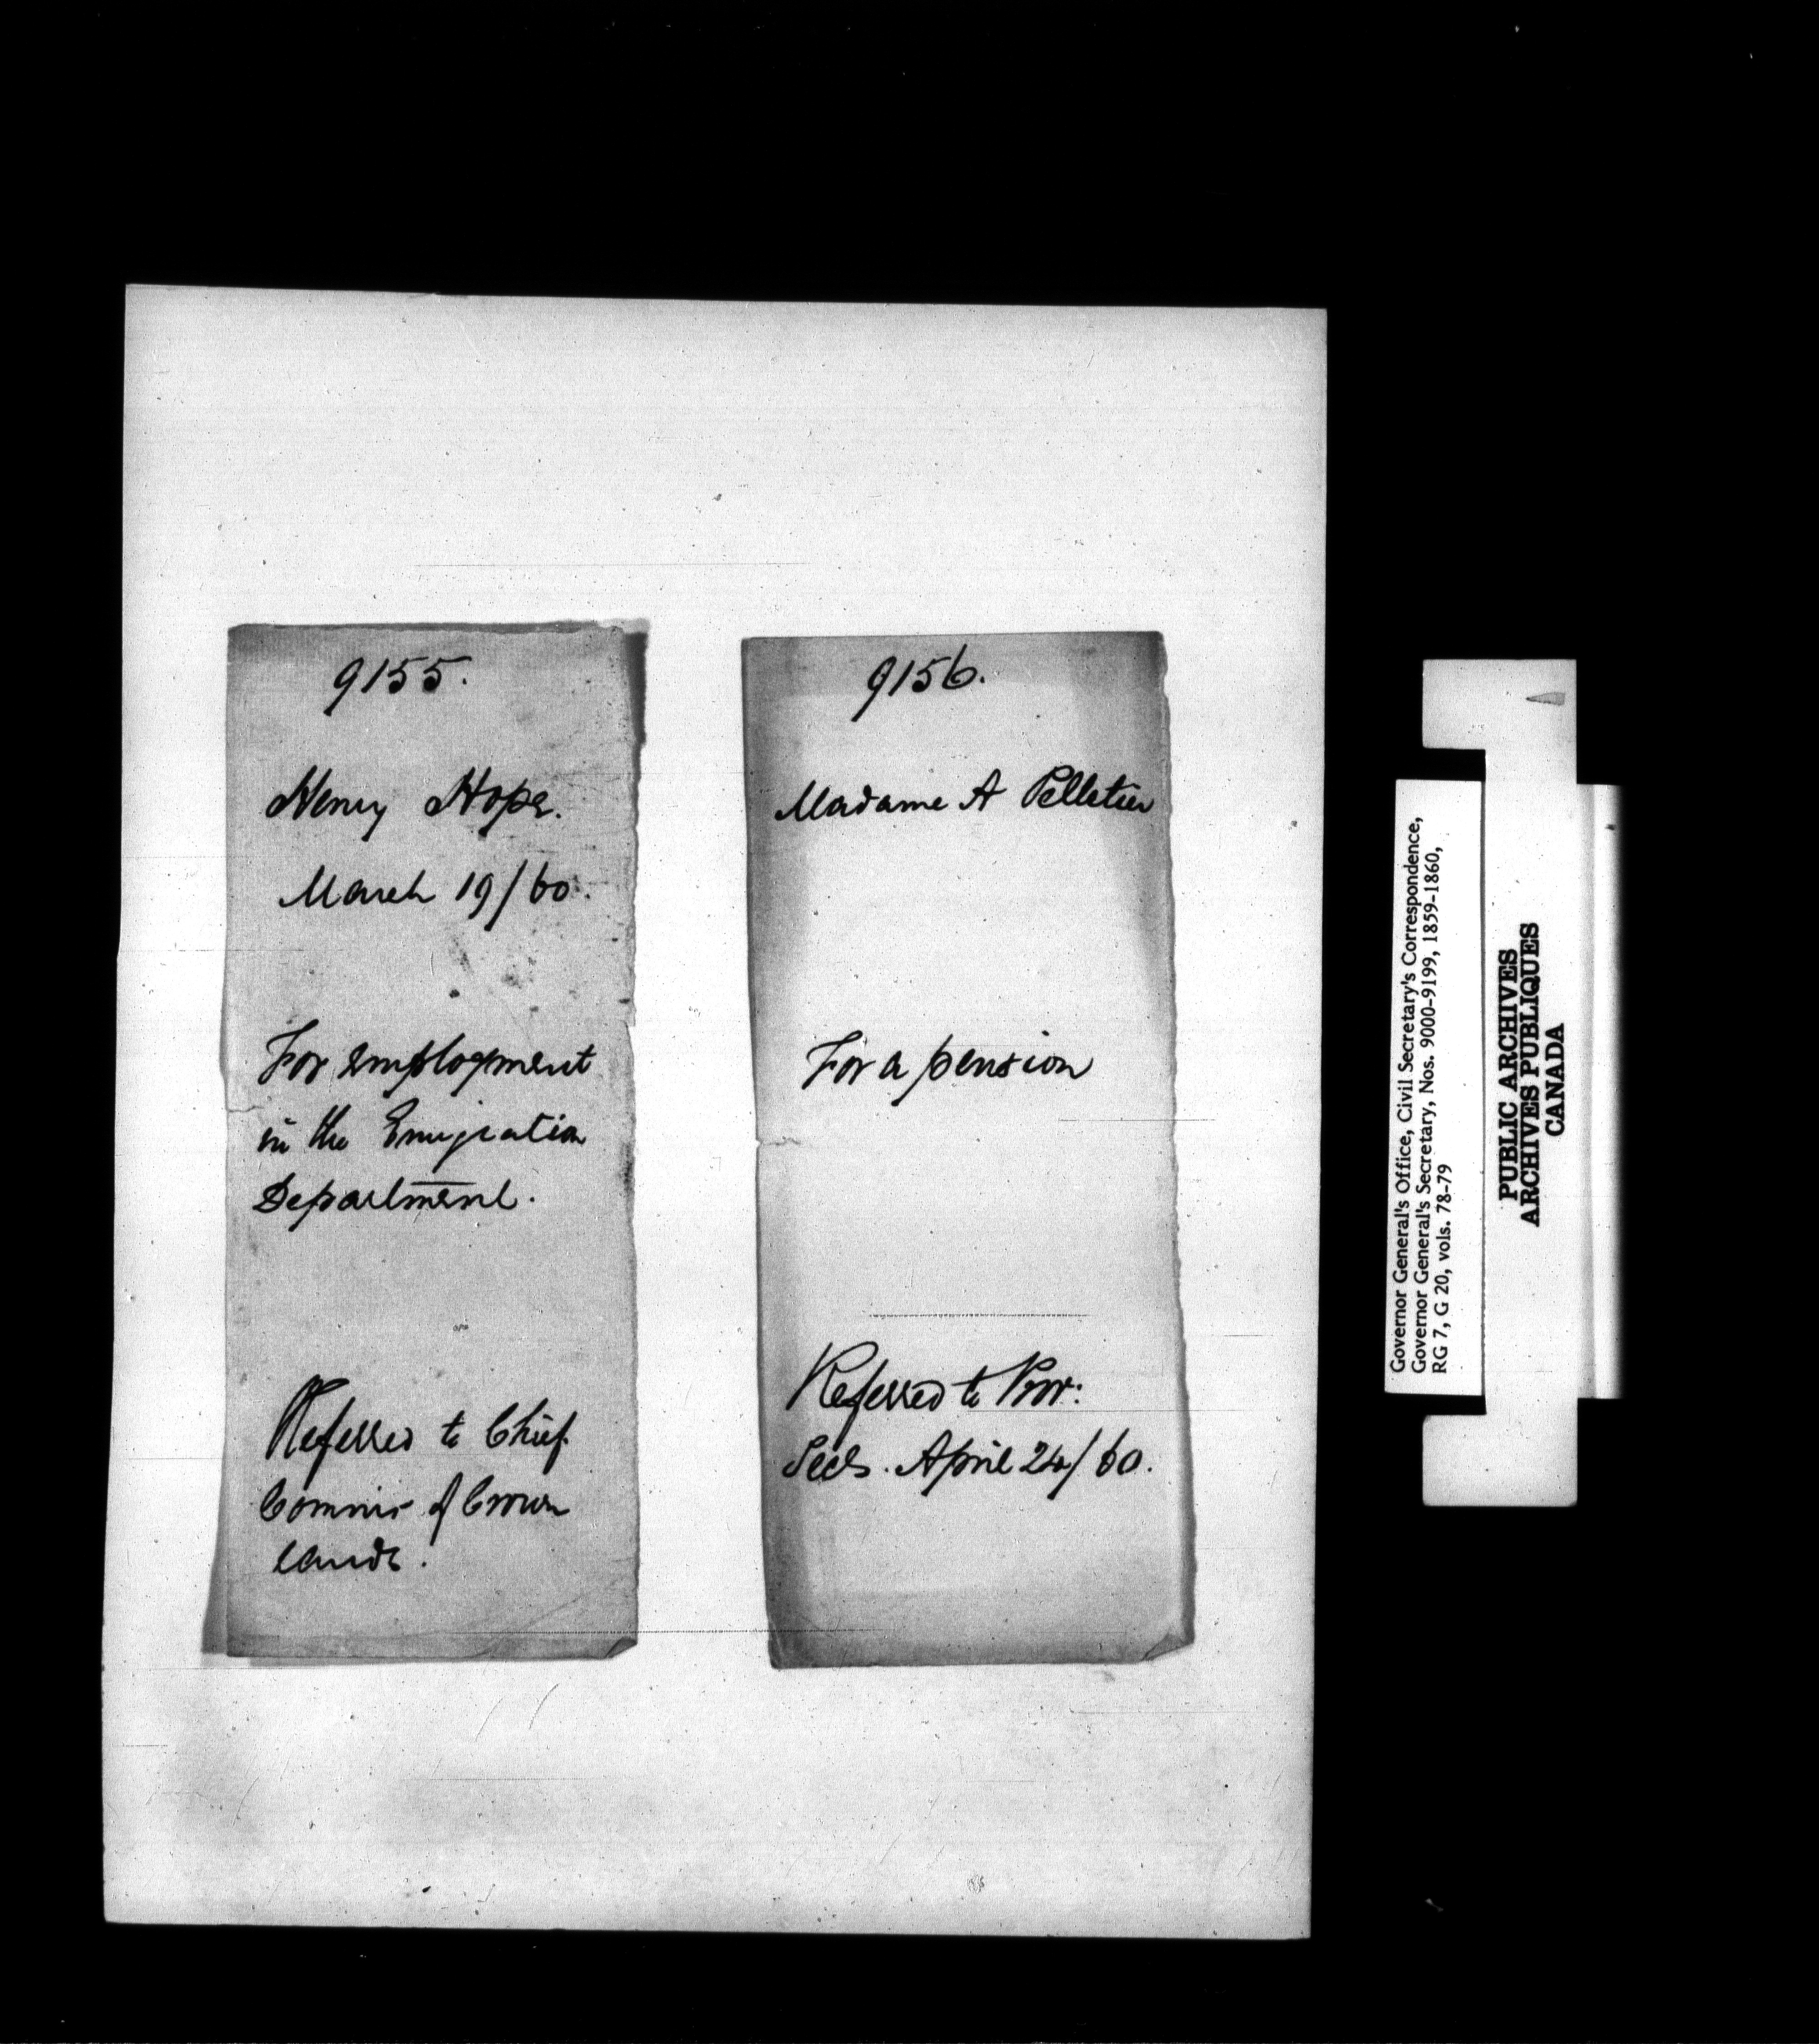 9155.
Henry Hope.
March 19/60.
For employment
in the Emigration
Department.
Referred to Chief
Commis of Crown
Lands.
9156.
Madame A Pelletier
For a pension
Referred to Prov:
Secy. April 24/60.
Governor General's Office, Civil Secretary's Correspondence,
Governor General's Secretary, Nos. 9000-9199, 1859-1860,
RG 7, G 20, vols. 78-79
PUBLIC ARCHIVES
ARCHIVES PUBLIQUES
CANADA